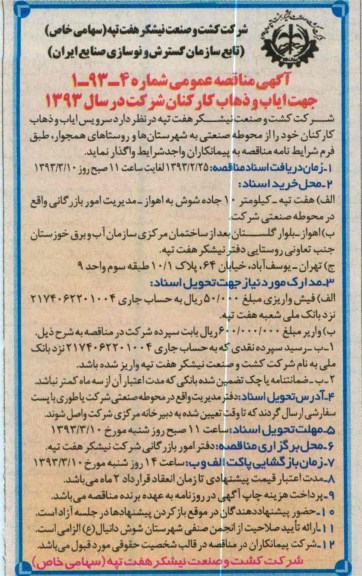 شرکت کشت و صنعت نیشکر هفت تپه (سهامی خاص)
(تابع سازمان گسترش و نوسازی صنایع ایران)
آگهی مناقصه عمومی شماره ۴-۹۳-۱
جهت ایاب و ذهاب کارکنان شرکت در سال ۱۳۹۳
شرکت کشت و صنعت نیشکر هفت تپه در نظر دارد سرویس ایاب و ذهاب
کارکنان خود را از محوطه صنعتی به شهرستان‌ها و روستاهای همجوار، طبق
فرم شرایط نامه مناقصه به پیمانکاران واجد شرایط واگذار نماید.
۱-زمان دریافت اسناد مناقصه: ۱۳۹۳/۲/۲۵ لغایت ساعت ۱۱ صبح روز ۱۳۹۳/۳/۱۰
۲-محل خرید اسناد:
الف) هفت تپه - کیلومتر ۱۰ جاده شوش به اهواز - مدیریت امور بازرگانی واقع
در محوطه صنعتی شرکت.
ب) اهواز-بلوار گلستان بعد از ساختمان مرکزی سازمان آب و برق خوزستان
جنب تعاونی روستایی دفتر نیشکر هفت تپه.
ج) تهران - یوسف‌آباد، خیابان ۶۴، پلاک ۱۰/۱ طبقه سوم واحد ۹
۳-مدارک مورد نیاز جهت تحویل اسناد:
الف) فیش واریزی مبلغ ۵۰/۰۰۰ ریال به حساب جاری ۲۱۷۴۰۶۲۲۰۱۰۰۴
نزد بانک ملی شعبه هفت تپه.
ب) واریز مبلغ ۶۰۰/۰۰۰/۰۰۰ ریال بابت سپرده شرکت در مناقصه به شرح ذیل.
۱-ب-رسید سپرده نقدی که به حساب جاری ۲۱۷۴۰۶۲۲۰۱۰۰۴ نزد بانک
ملی به نام شرکت کشت و صنعت نیشکر هفت تپه واریز شده باشد.
۲-ب-ضمانتنامه یا چک تضمین شده بانکی که مدت اعتبار آن از سه ماه کمتر نباشد.
۴-آدرس تحویل اسناد: دفتر مدیریت واقع در محوطه صنعتی شرکت یا طوری با پست
سفارشی ارسال گردند که تا وقت تعیین شده به دبیرخانه مرکزی شرکت واصل شوند.
۵-مهلت تحویل اسناد: ساعت ۱۱ صبح روز شنبه مورخ ۱۳۹۳/۳/۱۰
۶-محل برگزاری مناقصه: دفتر امور بازرگانی شرکت نیشکر هفت تپه.
۷-زمان بازگشایی پاکت الف و ب: ساعت ۱۴ روز شنبه مورخ ۱۳۹۳/۳/۱۰
۸-مدت اعتبار قیمت پیشنهادی تا زمان انعقاد قرارداد ۳ ماه می‌باشد.
۹-پرداخت هزینه چاپ آگهی در روزنامه به عهده برنده مناقصه می‌باشد.
۱۰-حضور پیشنهاددهندگان در موقع باز کردن پیشنهادها در جلسه آزاد است.
۱۱-ارائه تأیید صلاحیت از انجمن صنفی شهرستان شوش دانیال(ع) الزامی است.
۱۲-شرکت پیمانکاران در مناقصه در قالب شخصیت حقوقی مورد قبول می‌باشد.
شرکت کشت و صنعت نیشکر هفت تپه (سهامی خاص)